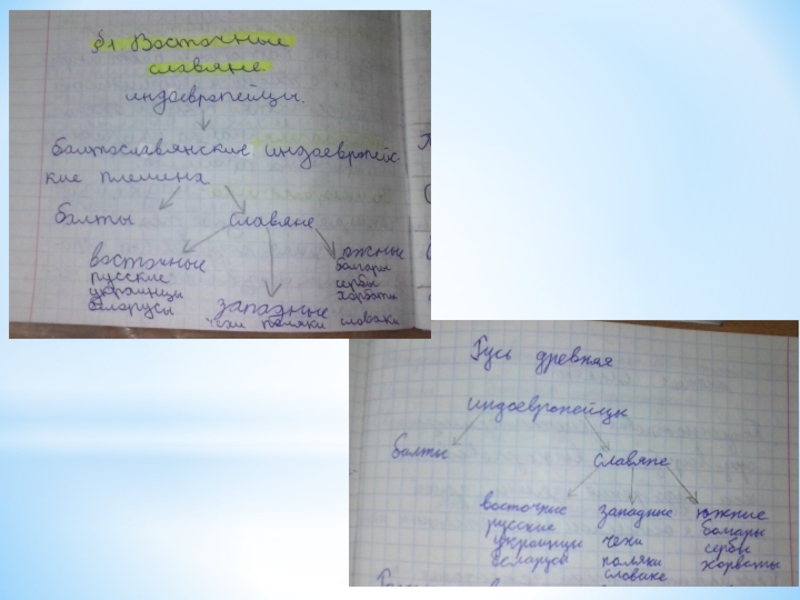 §1 Восточные
славяне.
индоевропейцы.
балтославянские индоевропейс-
кие племена
балты славяне
восточные
русские
украинцы
беларусы
западные
чехи поляки словаки
южные
болгары
сербы
хорваты
Русь древняя
индоевропейцы
балты
славяне
восточные западные южные
русские чехи болгары
украинцы поляки сербы
беларусы словаке хорваты